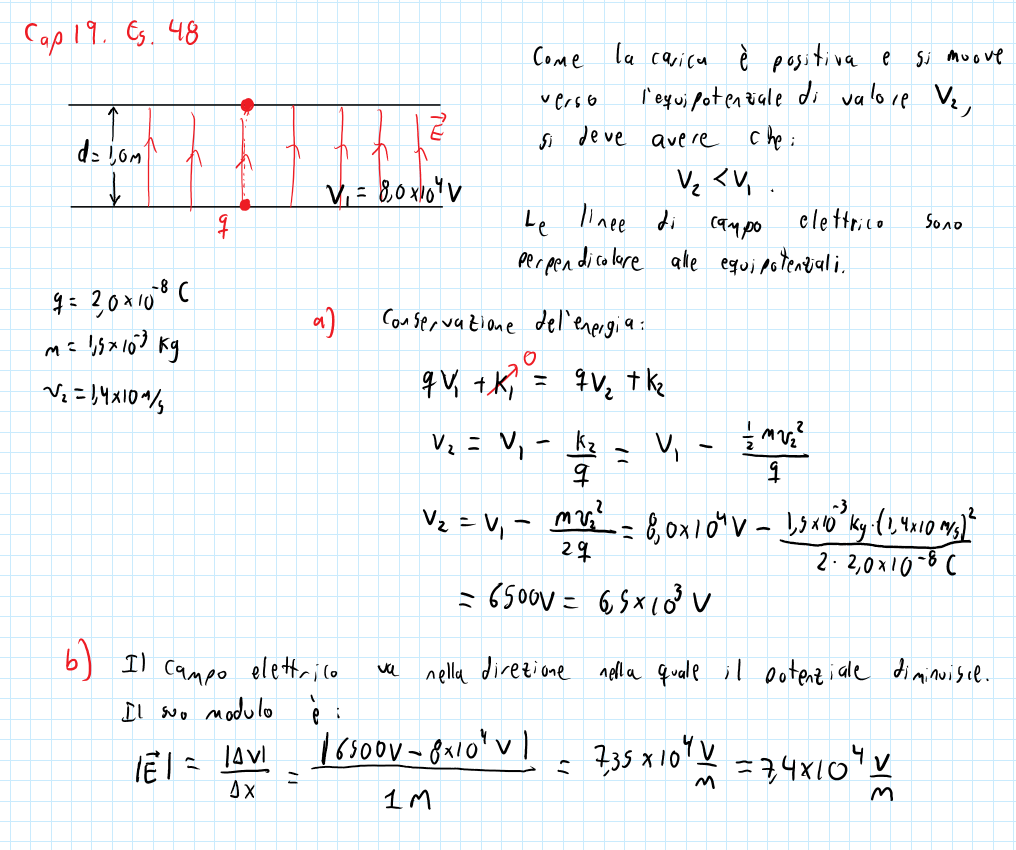 Cap 19. Es. 48
Come la carica è positiva e si muove
verso l'equipotenziale di valore V₂,
si deve avere che:
V₂ < V₁.
Le linee di campo elettrico sono
perpendicolare alle equipotenziali.
E⃗
d = 1,0m
V₁ = 8,0×10⁴ V
q
q = 2,0×10⁻⁸ C
m = 1,5×10⁻³ Kg
v₂ = 1,4×10 m/s
a) Conservazione dell'energia:
qV₁ + K₁ 0 = qV₂ + K₂
V₂ = V₁ - K₂/q = V₁ - ½mv₂²/q
V₂ = V₁ - mv₂²/2q = 8,0×10⁴ V - 1,5×10⁻³ kg·(1,4×10 m/s)²/2·2,0×10⁻⁸ C
= 6500V = 6,5×10³ V
b) Il campo elettrico va nella direzione nella quale il potenziale diminuisce.
Il suo modulo è:
|E⃗| = |ΔV|/Δx = |6500V - 8×10⁴ V|/1m = 7,35×10⁴ V/m = 7,4×10⁴ V/m